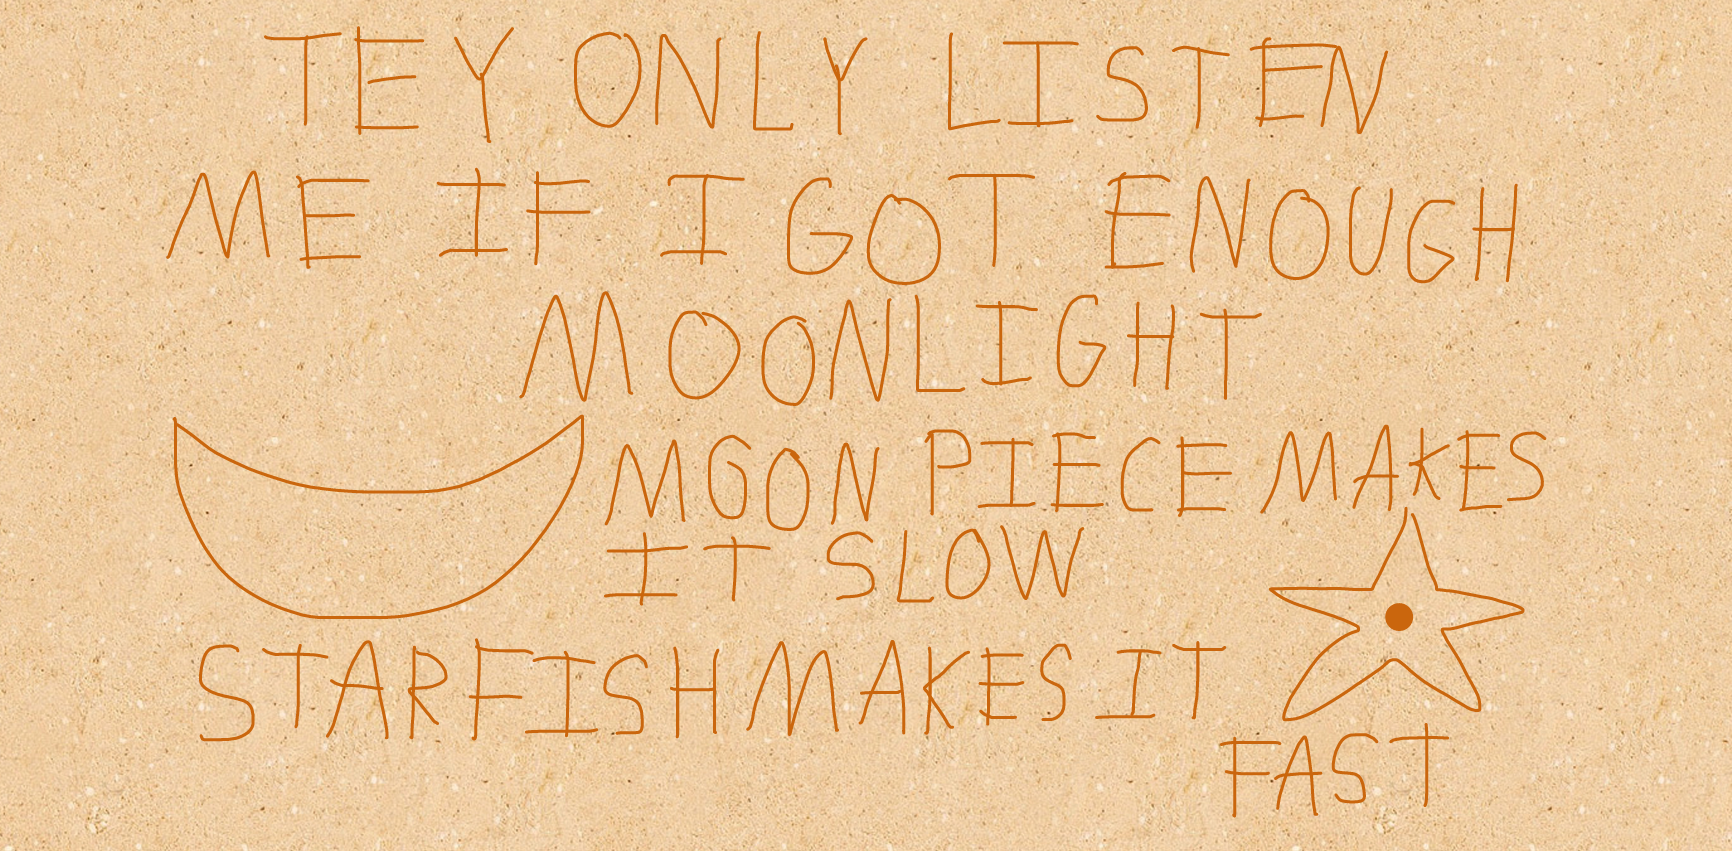 TEY ONLY LISTEN
ME IF I GOT ENOUGH
MOONLIGHT
MOON PIECE MAKES
IT SLOW
STARFISH MAKES IT
FAST